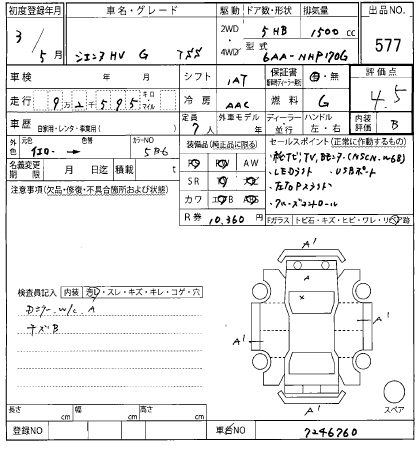 初度登録年月 車名・グレード 駆動 ドア数・形状 排気量 出品NO.
3/5月 シエンタHV G 2WD 5HB 1500cc 577
4WD 型式 6AA-NHP170G
車検 年 月 シフト IAT 保証書 有・無 評価点
走行 9万2千595キロ マイル 冷房 AAC 燃料 G 4.5
車歴 自家用・レンタ・事業用( ) 定員 7人 外車モデル 年 ディーラー・並行 ハンドル 左・右 内装評価 B
外色 元色 イエロー → 色替 カラーNO 5B6
装備品(純正品に限る) セールスポイント(正常に作動するもの)
名義変更期限 月 日迄 積載 t
PS PW AW
SR ナビ TV
カワ エアB ABS
純ナビ,TV,Bモニター(NSCN-W68)
LEDライト ・USBポート
左オートスライド
クルーズコントロール
注意事項(欠品・修復・不具合箇所および状態)
R券 10,360円
Fガラス トビ石・キズ・ヒビ・ワレ・リペア跡
A'
A
X
A'
A'
A'
スペア
検査員記入 内装 汚レ・スレ・キズ・キレ・コゲ・穴
Dミラー w/c A
キズB
長さ cm 幅 cm 高さ cm
登録NO 車台NO 7246760